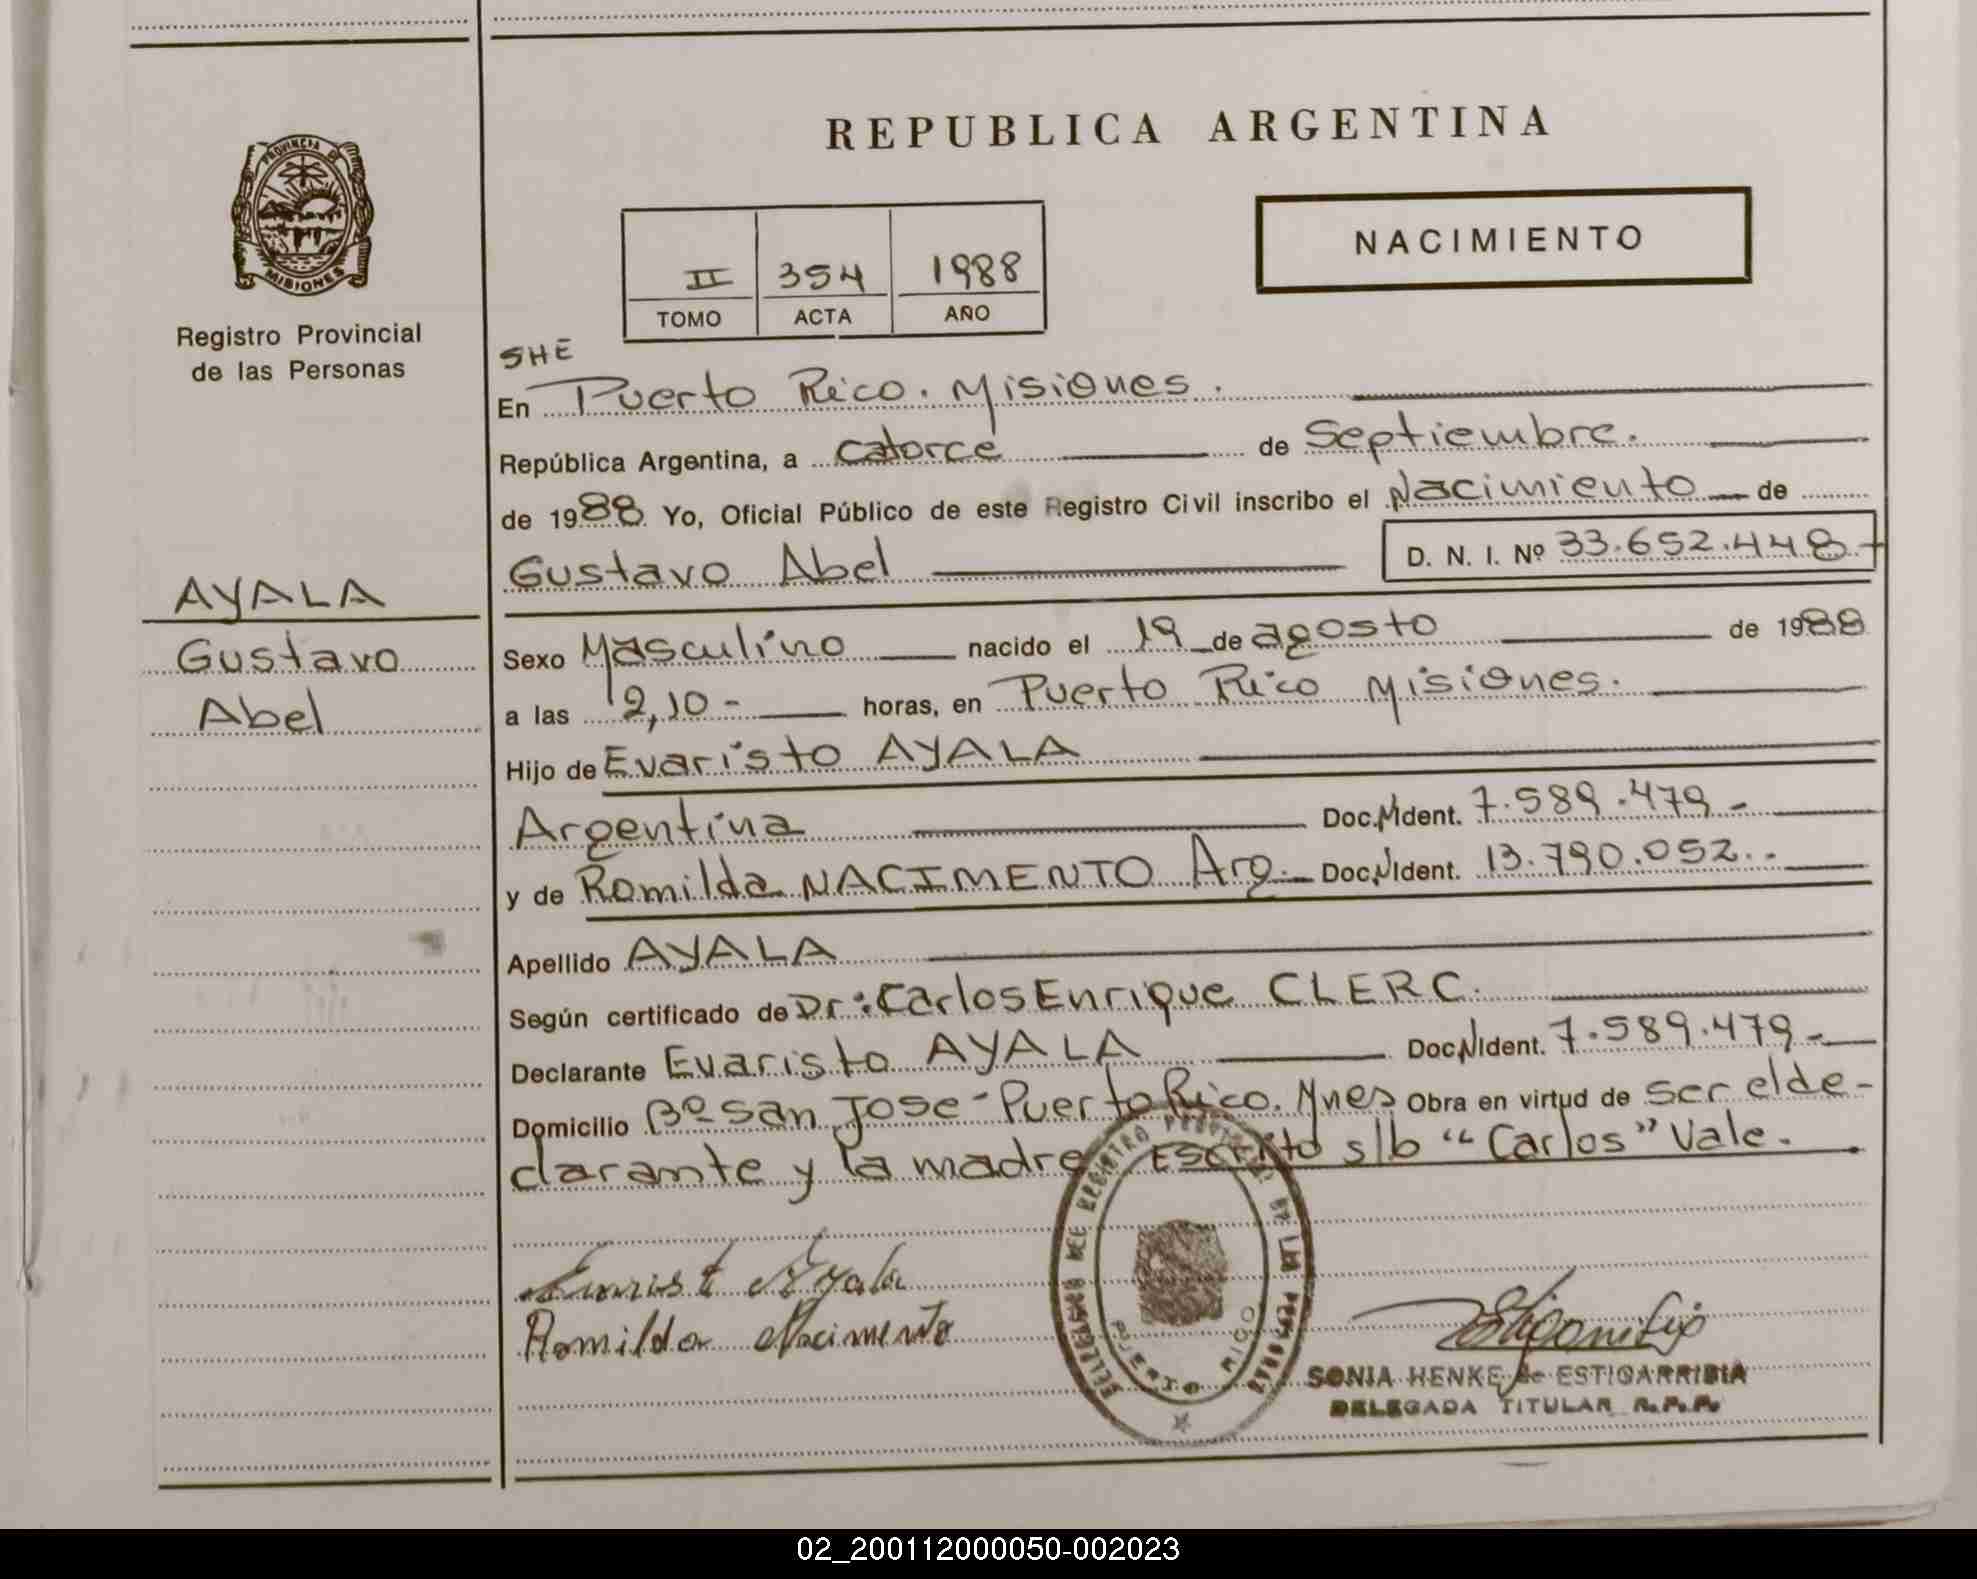 REPUBLICA ARGENTINA
PROVINCIA DE
MISIONES
Registro Provincial
de las Personas
NACIMIENTO
II 354 1988
TOMO ACTA AÑO
SHE
En Puerto Rico. Misiones.
República Argentina, a catorce de Septiembre.
de 1988 Yo, Oficial Público de este Registro Civil inscribo el Nacimiento de
Gustavo Abel D. N. I. Nº 33.652.448
AYALA
Gustavo
Abel
Sexo Masculino nacido el 19 de agosto de 1988
a las 12,10- horas, en Puerto Rico Misiones.
Hijo de Evaristo AYALA
Argentina Doc. N Ident. 7.589.479-
y de Romilda NACIMENTO Arg. Doc. N Ident. 13.790.052.-
Apellido AYALA
Según certificado de Dr: Carlos Enrique CLERC.
Declarante Evaristo AYALA Doc. N Ident. 7.589.479.-
Domicilio Bº San Jose - Puerto Rico. Mnes Obra en virtud de ser el de-
clarante y la madre Escrito s/b "Carlos" Vale.
Evarist Ayala
Romilda Nacimento
REGISTRO PROVINCIAL DE LAS PERSONAS
PUERTO RICO
SONIA HENKE de ESTIGARRIBIA
DELEGADA TITULAR R.P.P.
02_200112000050-002023